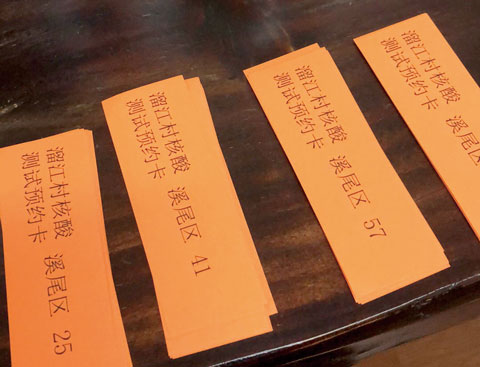 溜江村核酸
测试预约卡
溪尾区 25
溜江村核酸
测试预约卡
溪尾区 41
溜江村核酸
测试预约卡
溪尾区 57
溜江村核酸
测试预约卡